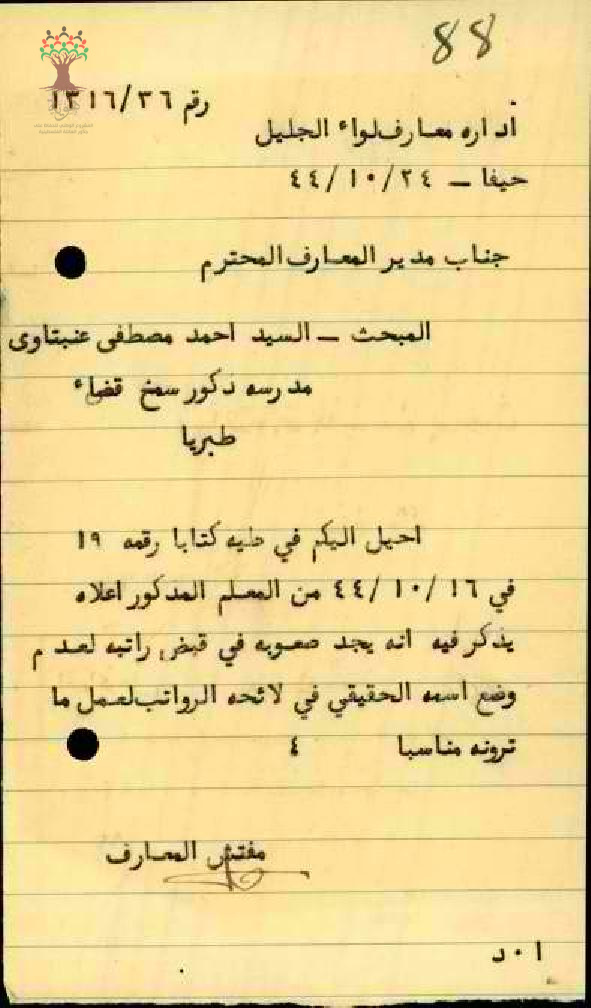 88
رقم ١٣١٦/٣٦
اداره معارف لواء الجليل
حيفا - ٤٤/١٠/٢٤
جناب مدير المعارف المحترم
المبحث - السيد احمد مصطفى عنبتاوى
مدرسه ذكور سمخ قضاء
طبريا
احيل اليكم في طيه كتابا رقمه ١٩
في ١٦/١٠/٤٤ من المعلم المذكور اعلاه
يذكر فيه انه يجد صعوبه في قبض راتبه لعدم
وضع اسمه الحقيقي في لائحه الرواتب لعمل ما
ترونه مناسبا ٤
مفتش المعارف
ا٠د